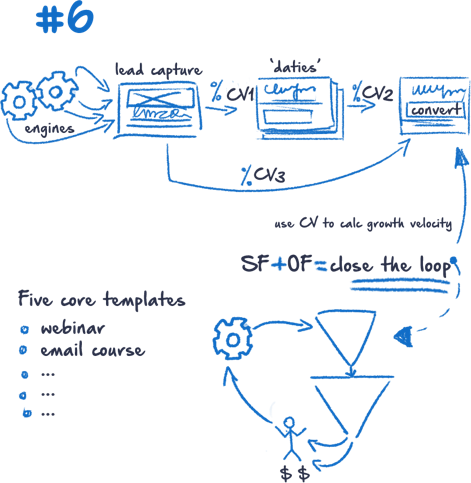 #6
lead capture
'daties'
engines
% CV1
% CV2
convert
% CV3
use CV to calc growth velocity
SF+OF=close the loop
Five core templates
webinar
email course
...
...
...
$ $